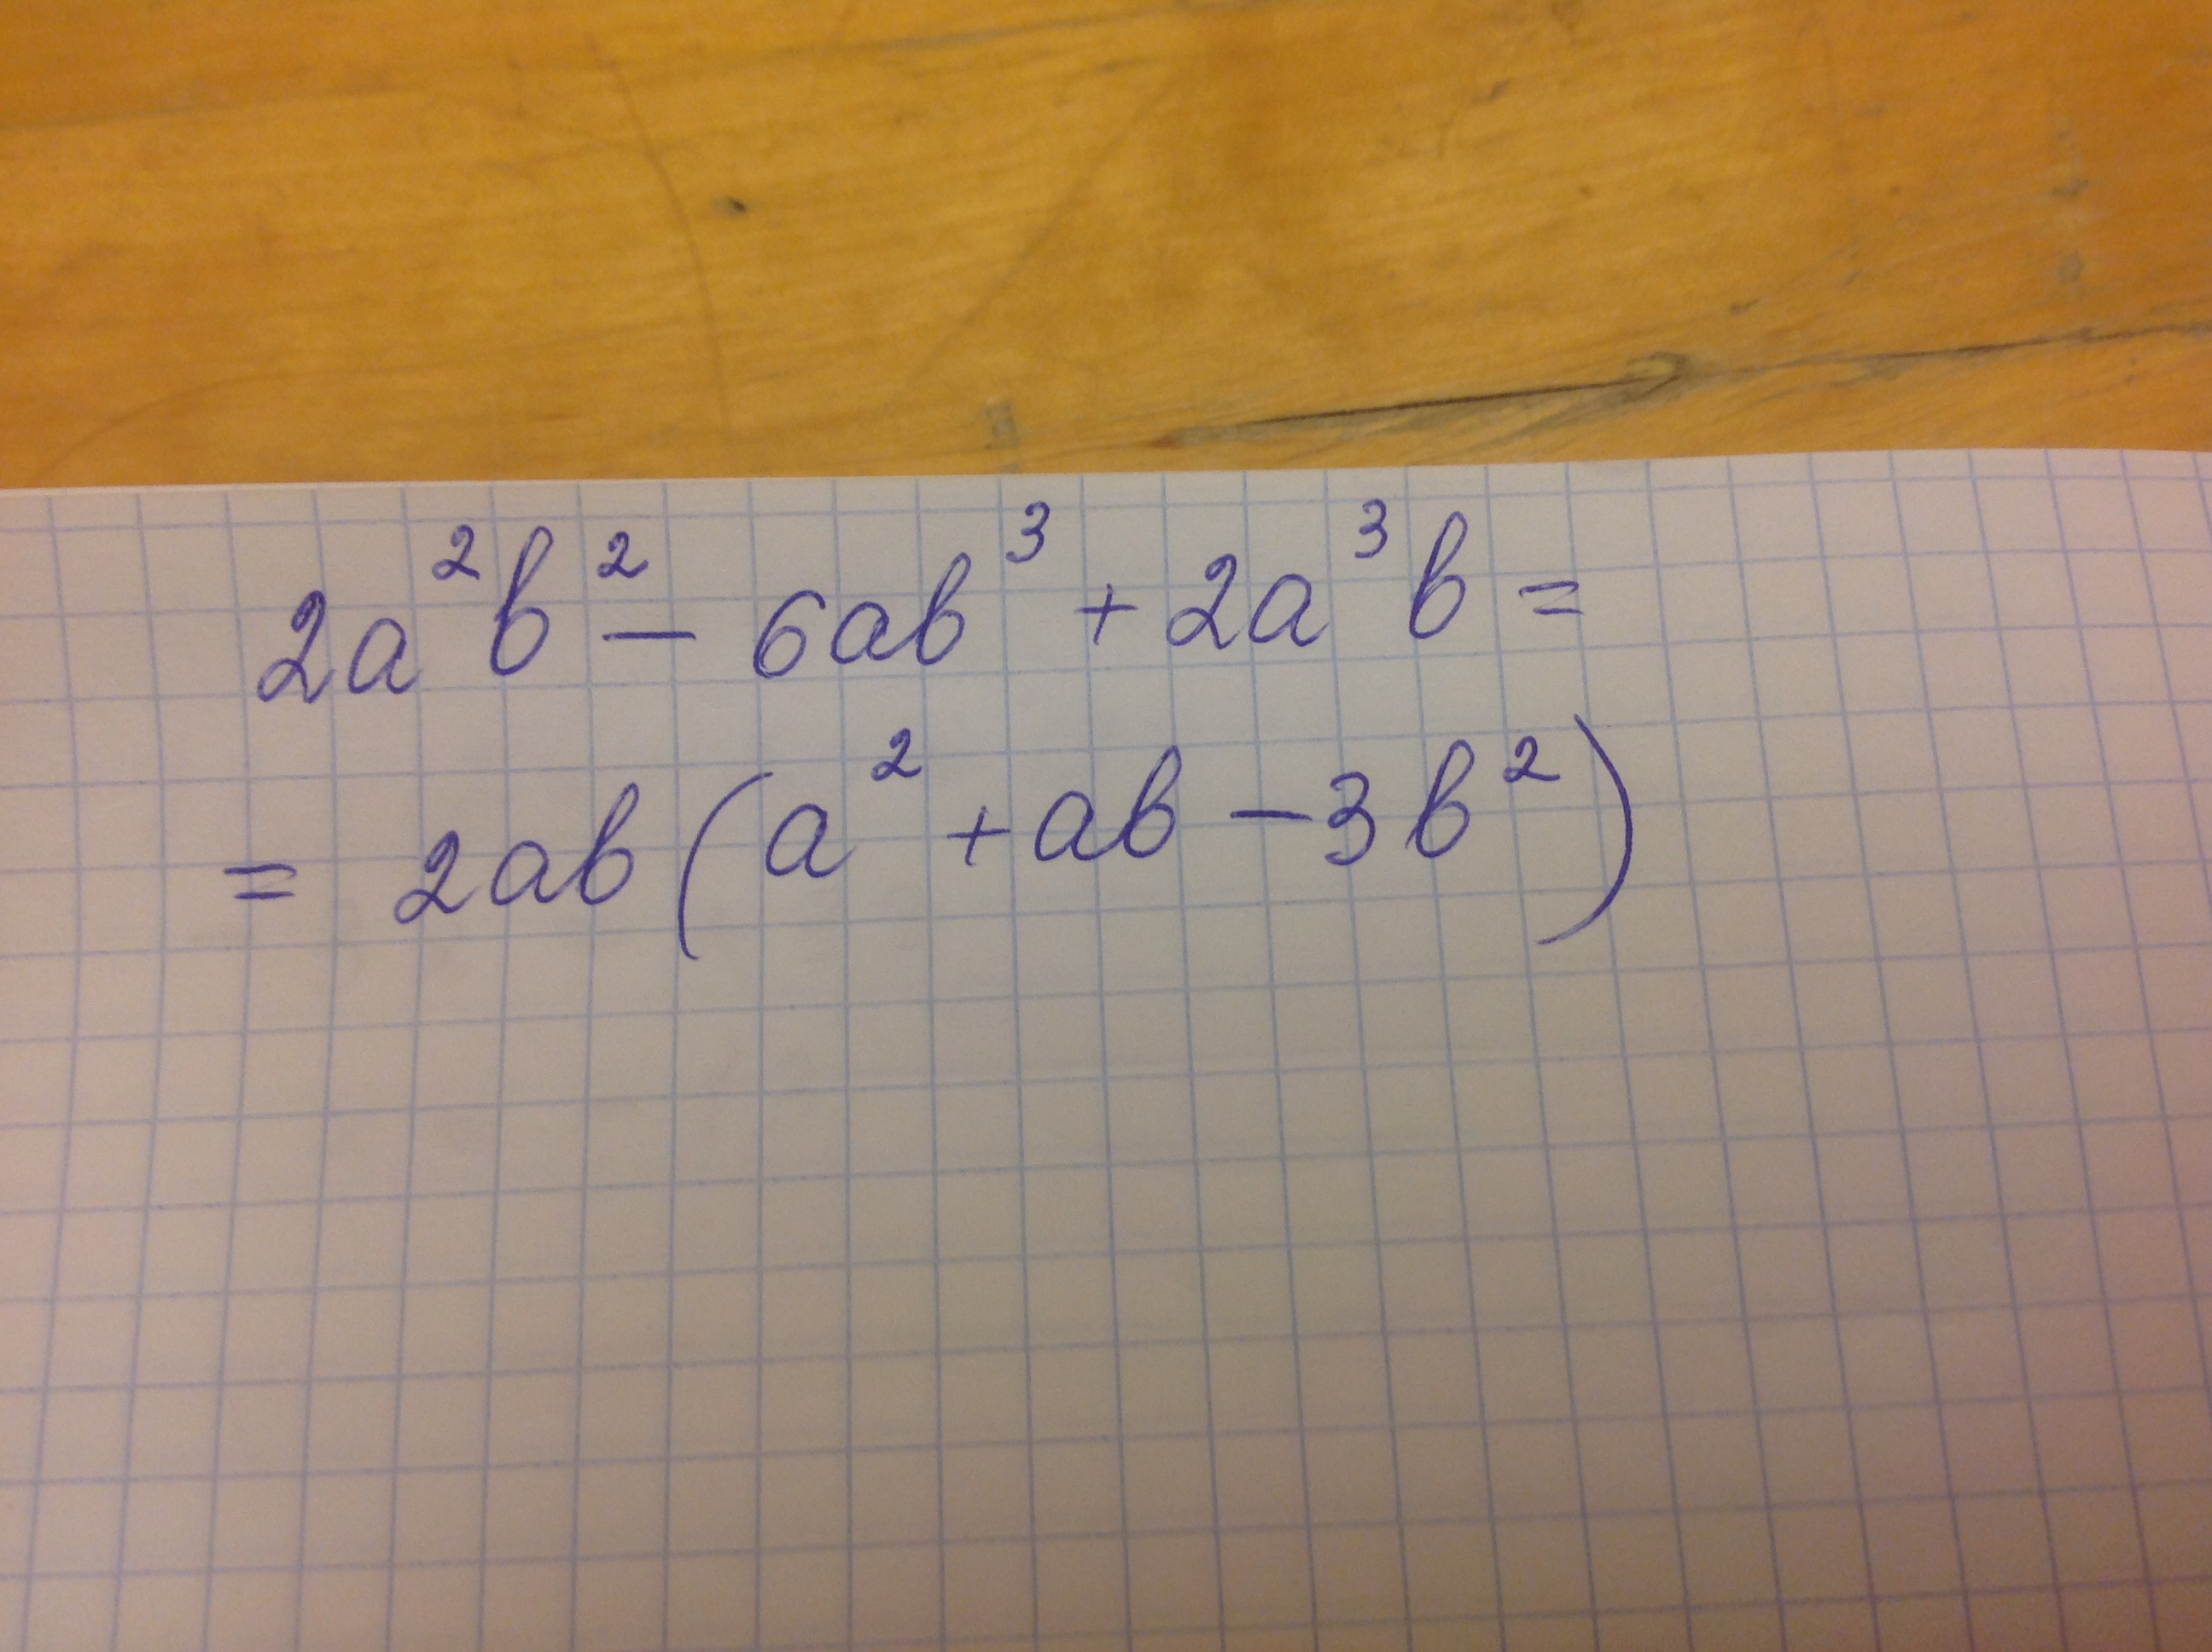 2a²b² - 6ab³ + 2a³b =
= 2ab(a² + ab - 3b²)